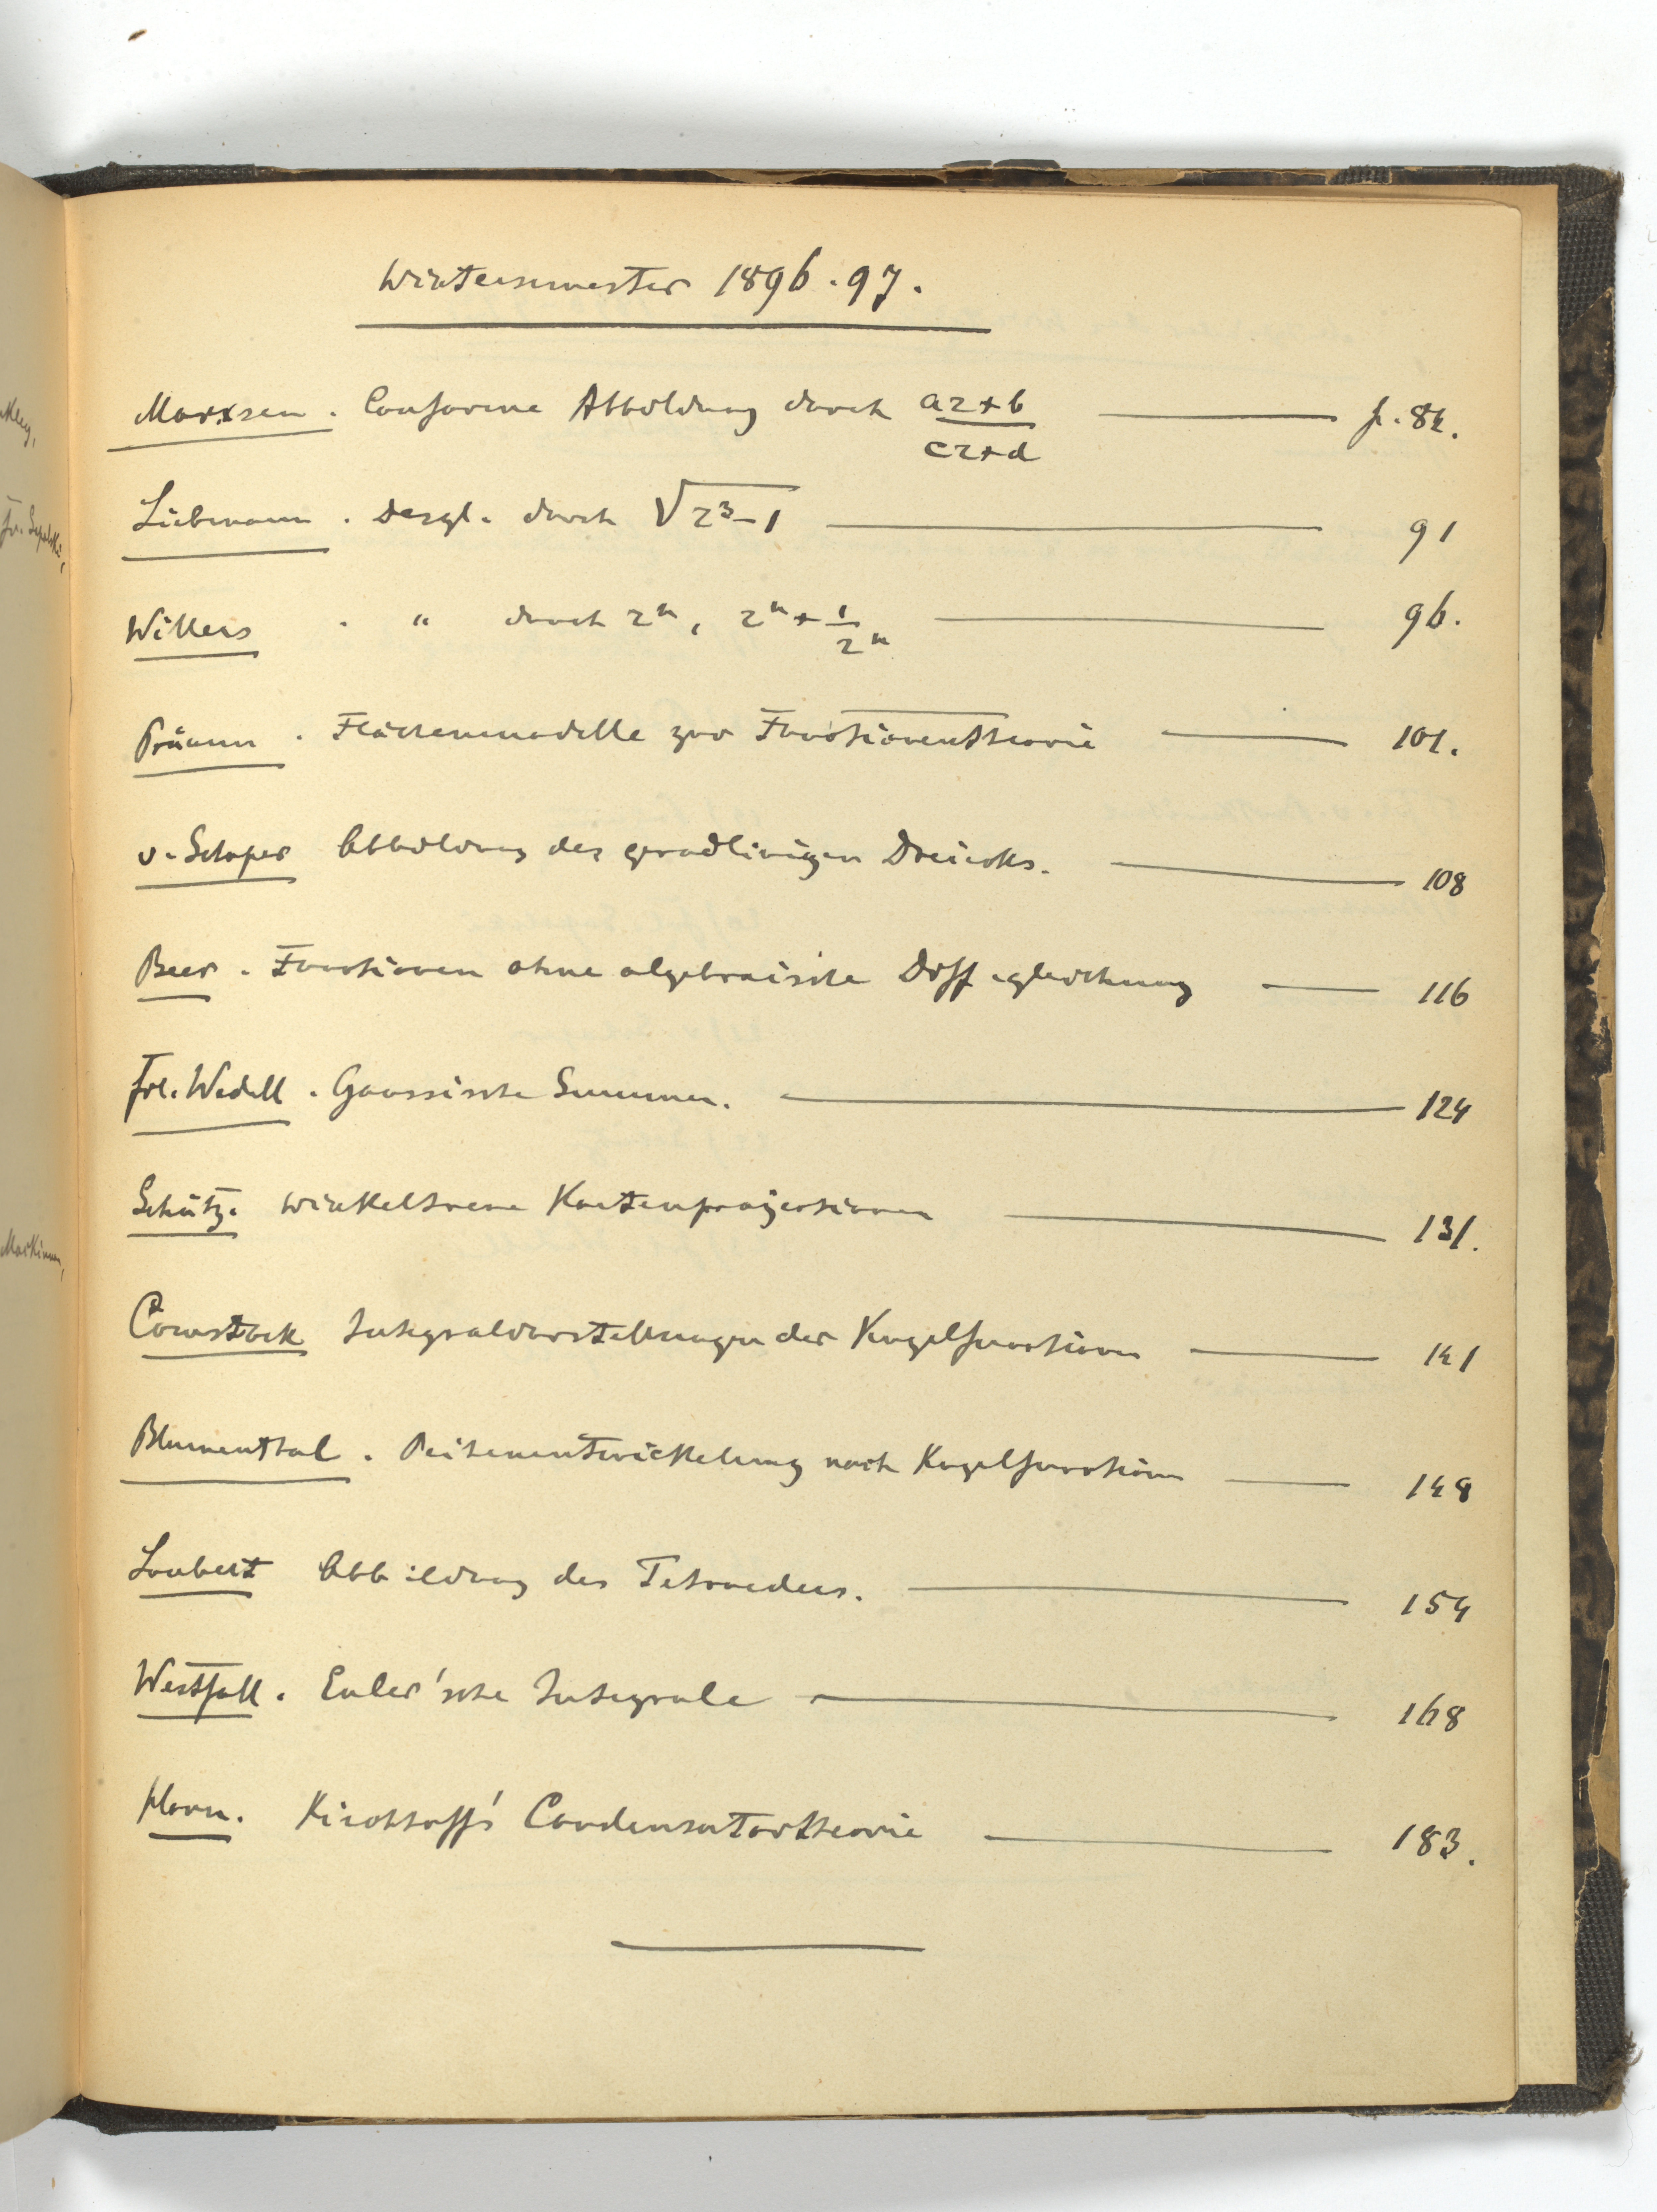 Wintersemester 1896.97.
Marxsen. Conforme Abbildung durch (az+b)/(cz+d) — p. 84.
Liebmann. Desgl. durch √(z³-1) — 91
Willers . " durch zⁿ, zⁿ + 1/zⁿ — 96.
Prüum . Flächenmodelle zur Functionentheorie — 101.
v. Schaper Abbildung des gradlinigen Dreiecks. — 108
Beer. Functionen ohne algebraische Diff.gleichung — 116
Frl. Wedell. Gaussische Summen. — 124
Schütz. Winkeltreue Kartenprojectionen — 131.
Comstock Integraldarstellungen der Kugelfunctionen — 141
Blumenthal. Reihenentwickelung nach Kugelfunctionen — 148
Laubert Abbildung des Tetraeders. — 154
Westfall. Euler'sche Integrale — 168
Horn. Kirchhoff's Condensatortheorie — 183.